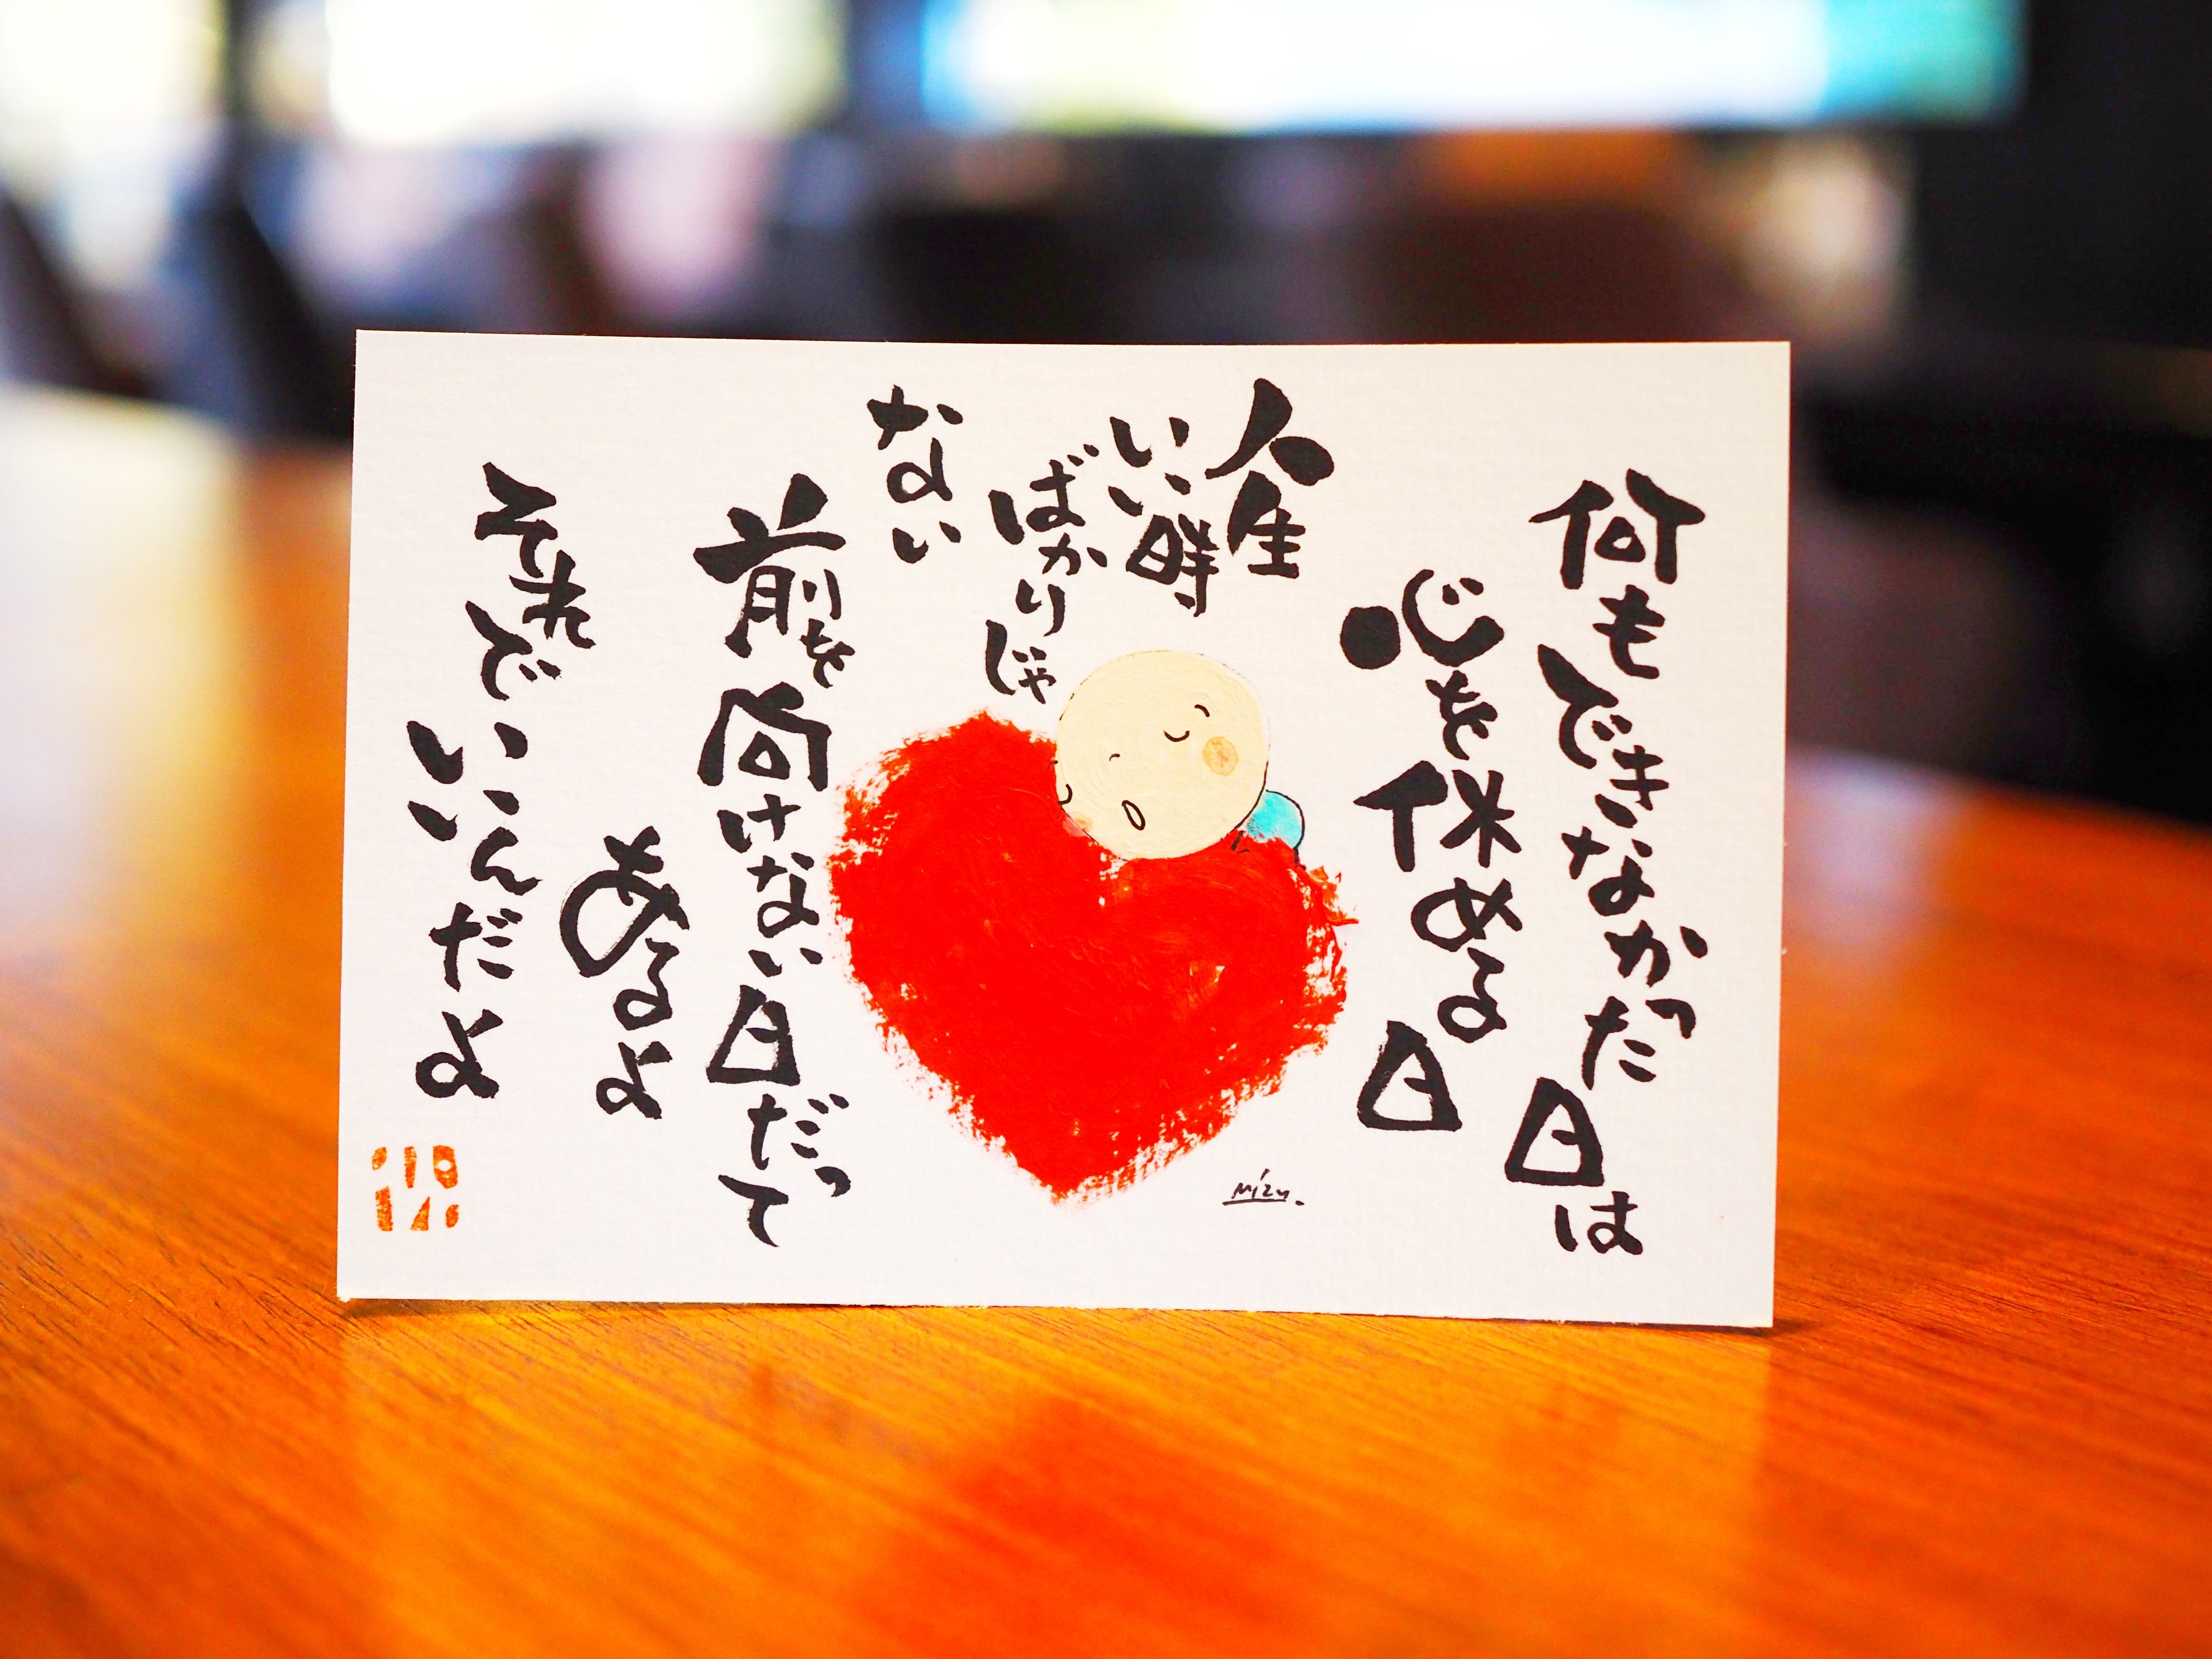 何もできなかった日は
心を休める日
人生
いい時
ばかりじゃ
ない
前を向けない日だって
あるよ
それでいいんだよ
mizu.